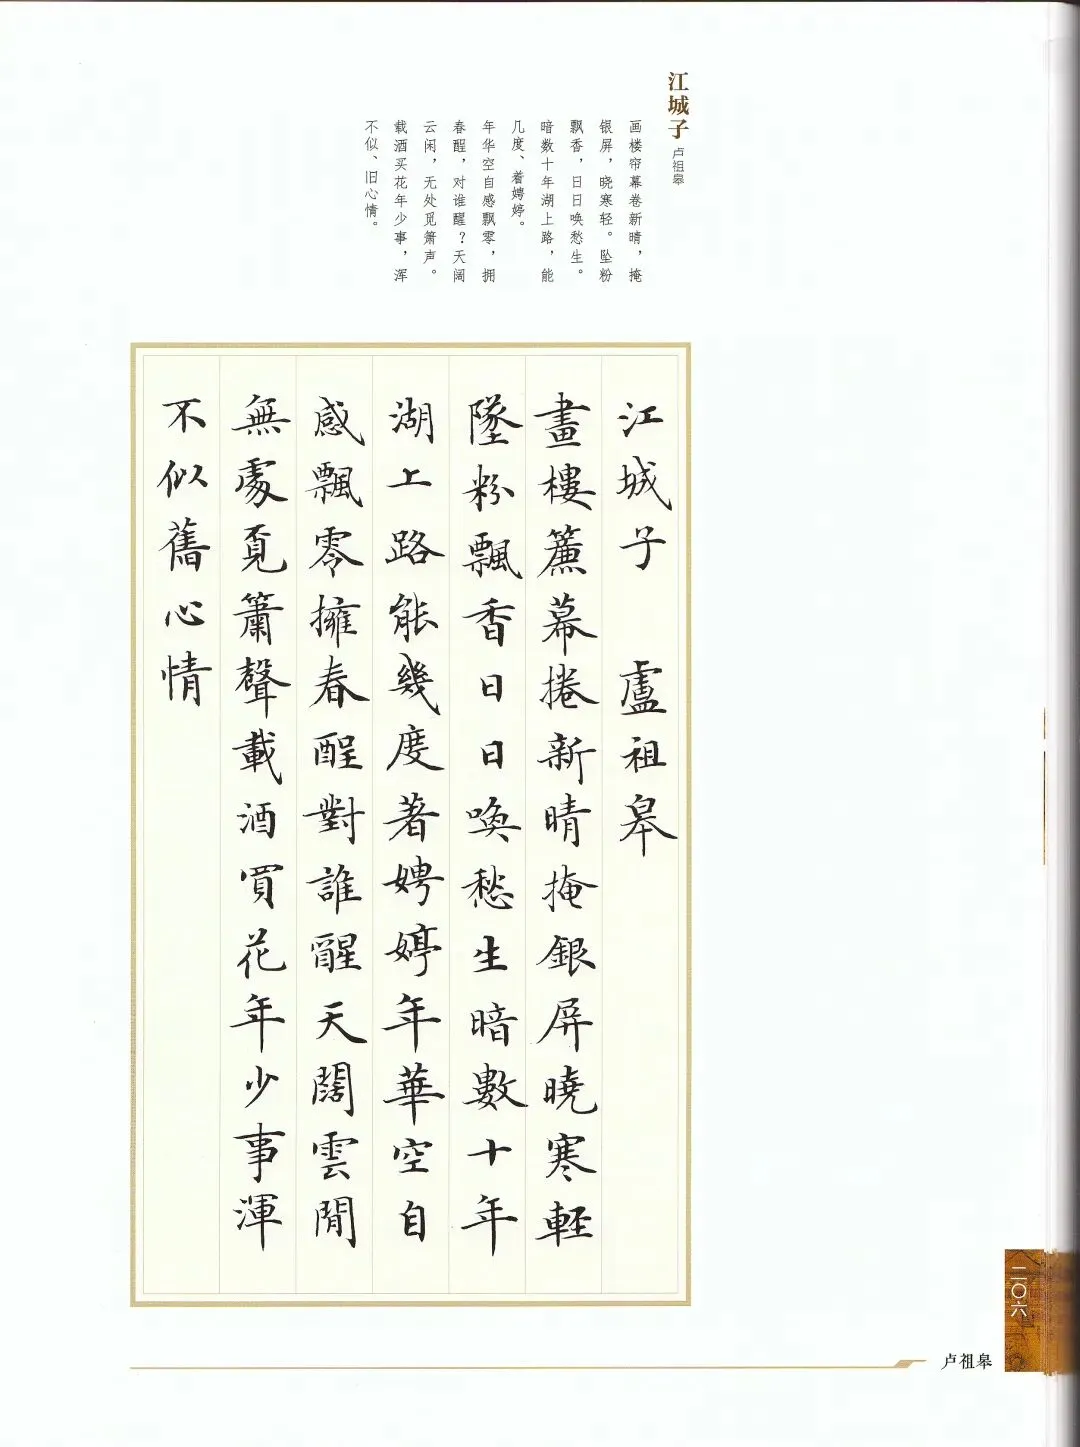 江城子 卢祖皋
画楼帘幕卷新晴，掩
银屏，晓寒轻。坠粉
飘香，日日唤愁生。
暗数十年湖上路，能
几度、着娉婷。
年华空自感飘零，拥
春醒，对谁醒？天阔
云闲，无处觅箫声。
载酒买花年少事，浑
不似、旧心情。
江城子 盧祖皋
畫樓簾幕捲新晴掩銀屏曉寒輕
墜粉飄香日日喚愁生暗數十年
湖上路能幾度著娉婷年華空自
感飄零擁春酲對誰醒天闊雲閒
無處覓簫聲載酒買花年少事渾
不似舊心情
二〇六
卢祖皋